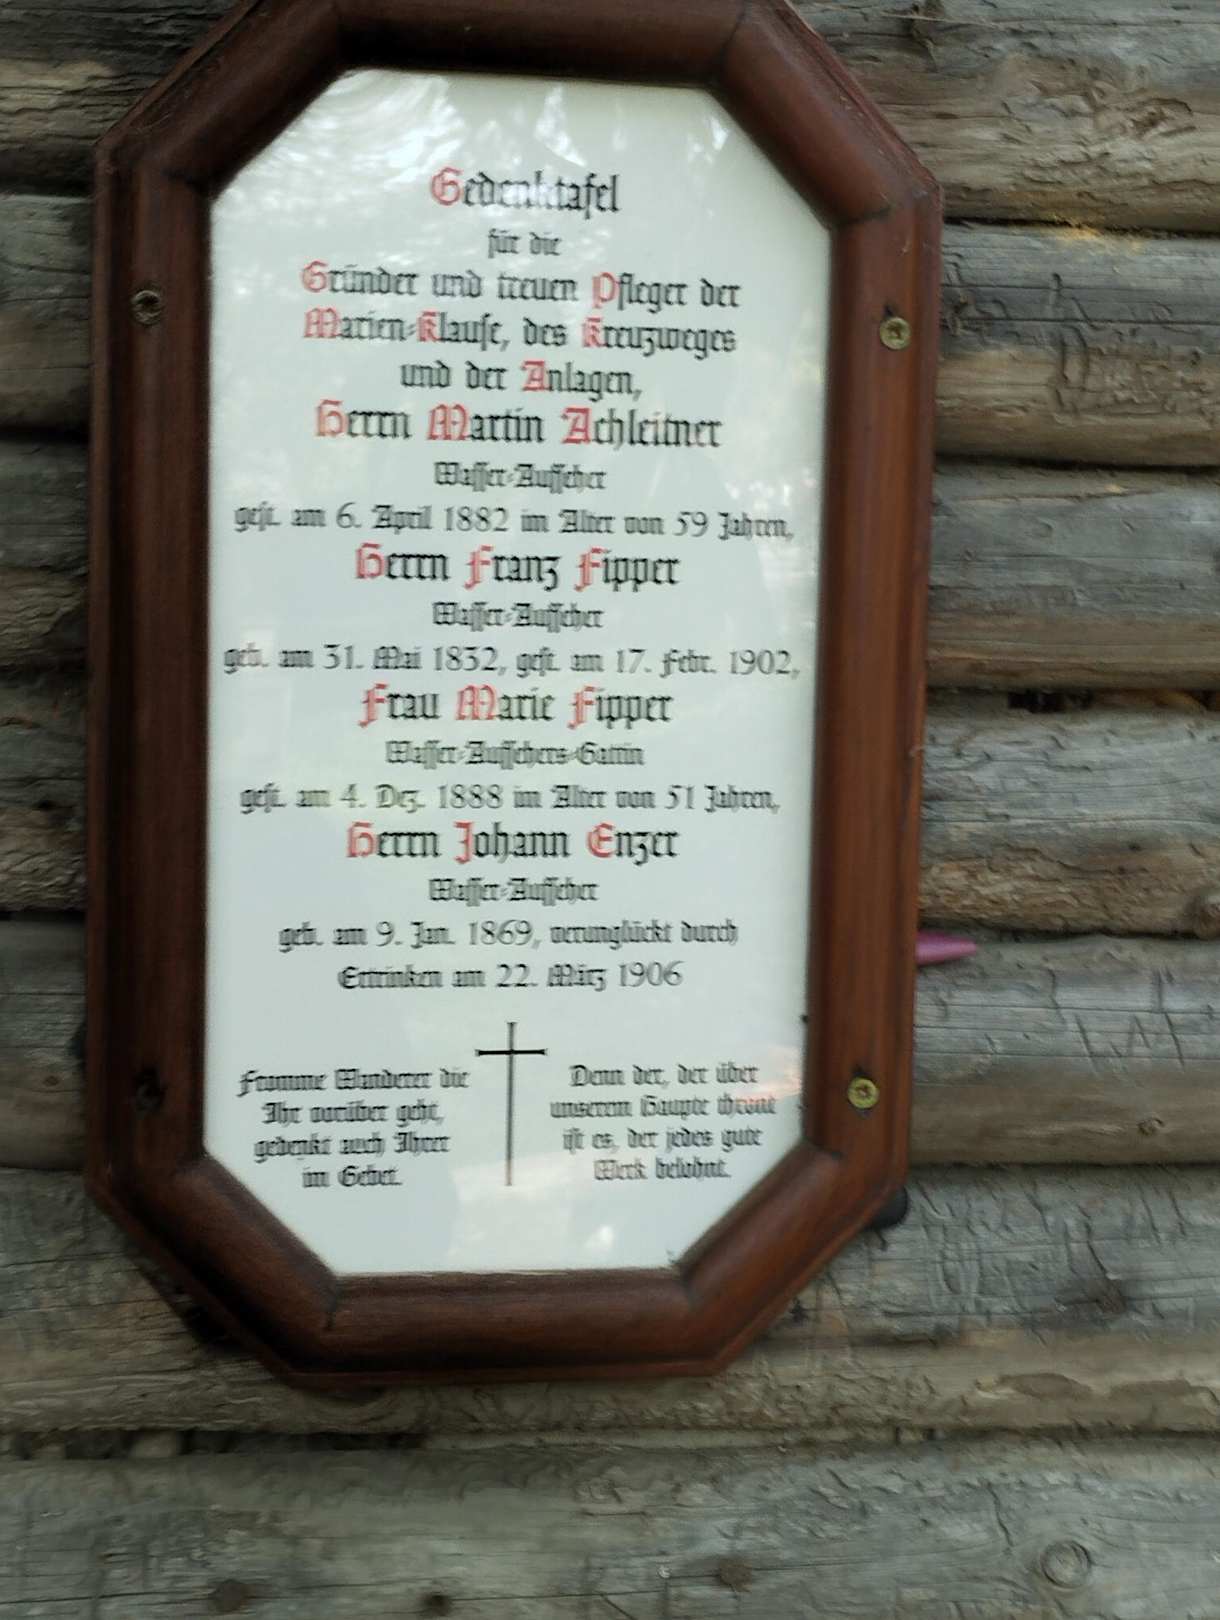 Gedenktafel
für die
Gründer und treuen Pfleger der
Marien=Klause, des Kreuzweges
und der Anlagen,
Herrn Martin Achleitner
Wasser=Aufseher
gest. am 6. April 1882 im Alter von 59 Jahren,
Herrn Franz Fipper
Wasser=Aufseher
geb. am 31. Mai 1832, gest. am 17. Febr. 1902,
Frau Marie Fipper
Wasser=Aufsehers=Gattin
gest. am 4. Dez. 1888 im Alter von 51 Jahren,
Herrn Johann Enzer
Wasser=Aufseher
geb. am 9. Jan. 1869, verunglückt durch
Ertrinken am 22. März 1906
Fromme Wanderer die
Ihr vorüber geht,
gedenkt auch Ihrer
im Gebet.
Denn der, der über
unserem Haupte thront
ist es, der jedes gute
Werk belohnt.